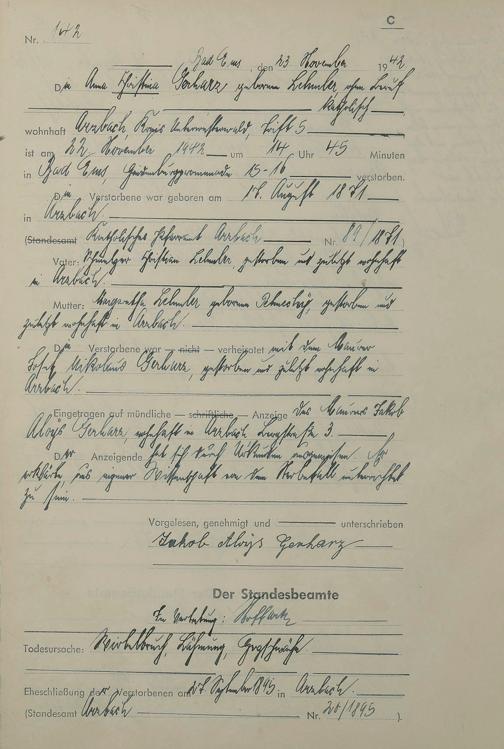 C
Nr. 142
Bad Ems, den 23. November 1942
Die Anna Christina Gerharz geborene Lehmler, ohne Beruf
katholisch
wohnhaft Arzbach Kreis Unterwesterwald, Trift 5
ist am 22. November 1942 um 14 Uhr 45 Minuten
in Bad Ems, 15-16 verstorben.
Die Verstorbene war geboren am 17. August 1871
in Arzbach
(Standesamt Katholisches Pfarramt Arzbach Nr. 89/1871)
Vater: Christian Lehmler, verstorben und zuletzt wohnhaft
in Arzbach.
Mutter: Margaretha Lehmler geborene, gestorben und
zuletzt wohnhaft in Arzbach.
Die Verstorbene war nicht verheiratet mit dem Maurer
Josef Nikolaus Gerharz, gestorben und zuletzt wohnhaft in
Arzbach.
Eingetragen auf mündliche schriftliche Anzeige des Maurers Jakob
Aloys Gerharz, wohnhaft in Arzbach 3.
Der Anzeigende hat sich durch ausgewiesen. Er
erklärte, aus eigener Wissenschaft von dem Sterbefall unterrichtet
zu sein.
Vorgelesen, genehmigt und unterschrieben
Jakob Aloys Gerharz
Der Standesbeamte
In Vertretung:
Todesursache: Wirbelbruch, Lähmung,
Eheschließung der Verstorbenen am 27. September 1895 in Arzbach.
(Standesamt Arzbach Nr. 20/1895)